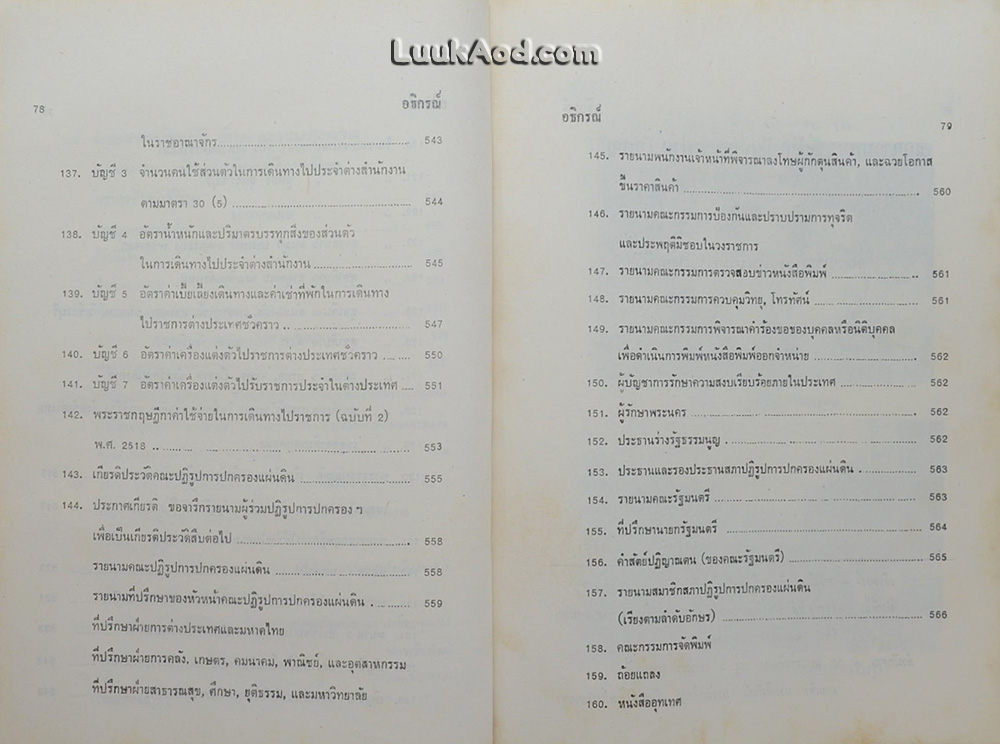 LuukAod.com
78
อธิกรณ์
ในราชอาณาจักร 543
137. บัญชี 3 จำนวนคนใช้ส่วนตัวในการเดินทางไปประจำต่างสำนักงาน
ตามมาตรา 30 (5) 544
138. บัญชี 4 อัตราน้ำหนักและปริมาตรบรรทุกสิ่งของส่วนตัว
ในการเดินทางไปประจำต่างสำนักงาน 545
139. บัญชี 5 อัตราค่าเบี้ยเลี้ยงเดินทางและค่าเช่าที่พักในการเดินทาง
ไปราชการต่างประเทศชั่วคราว 547
140. บัญชี 6 อัตราค่าเครื่องแต่งตัวไปราชการต่างประเทศชั่วคราว 550
141. บัญชี 7 อัตราค่าเครื่องแต่งตัวไปรับราชการประจำในต่างประเทศ 551
142. พระราชกฤษฎีกาค่าใช้จ่ายในการเดินทางไปราชการ (ฉบับที่ 2)
พ.ศ. 2518 553
143. เกียรติประวัติคณะปฏิรูปการปกครองแผ่นดิน 555
144. ประกาศเกียรติ ขอจารึกรายนามผู้ร่วมปฏิรูปการปกครอง ฯ
เพื่อเป็นเกียรติประวัติสืบต่อไป 558
รายนามคณะปฏิรูปการปกครองแผ่นดิน 558
รายนามที่ปรึกษาของหัวหน้าคณะปฏิรูปการปกครองแผ่นดิน 559
ที่ปรึกษาฝ่ายการต่างประเทศและมหาดไทย
ที่ปรึกษาฝ่ายการคลัง, เกษตร, คมนาคม, พาณิชย์, และอุตสาหกรรม
ที่ปรึกษาฝ่ายสาธารณสุข, ศึกษา, ยุติธรรม, และมหาวิทยาลัย
อธิกรณ์
79
145. รายนามพนักงานเจ้าหน้าที่พิจารณาลงโทษผู้กักตุนสินค้า, และฉวยโอกาส
ขึ้นราคาสินค้า 560
146. รายนามคณะกรรมการป้องกันและปราบปรามการทุจริต
และประพฤติมิชอบในวงราชการ
147. รายนามคณะกรรมการตรวจสอบข่าวหนังสือพิมพ์ 561
148. รายนามคณะกรรมการควบคุมวิทยุ, โทรทัศน์ 561
149. รายนามคณะกรรมการพิจารณาคำร้องขอของบุคคลหรือนิติบุคคล
เพื่อดำเนินการพิมพ์หนังสือพิมพ์ออกจำหน่าย 562
150. ผู้บัญชาการรักษาความสงบเรียบร้อยภายในประเทศ 562
151. ผู้รักษาพระนคร 562
152. ประธานร่างรัฐธรรมนูญ 562
153. ประธานและรองประธานสภาปฏิรูปการปกครองแผ่นดิน 563
154. รายนามคณะรัฐมนตรี 563
155. ที่ปรึกษานายกรัฐมนตรี 564
156. คำสัตย์ปฏิญาณตน (ของคณะรัฐมนตรี) 565
157. รายนามสมาชิกสภาปฏิรูปการปกครองแผ่นดิน
(เรียงตามลำดับอักษร) 566
158. คณะกรรมการจัดพิมพ์
159. ถ้อยแถลง
160. หนังสืออุทเทศ